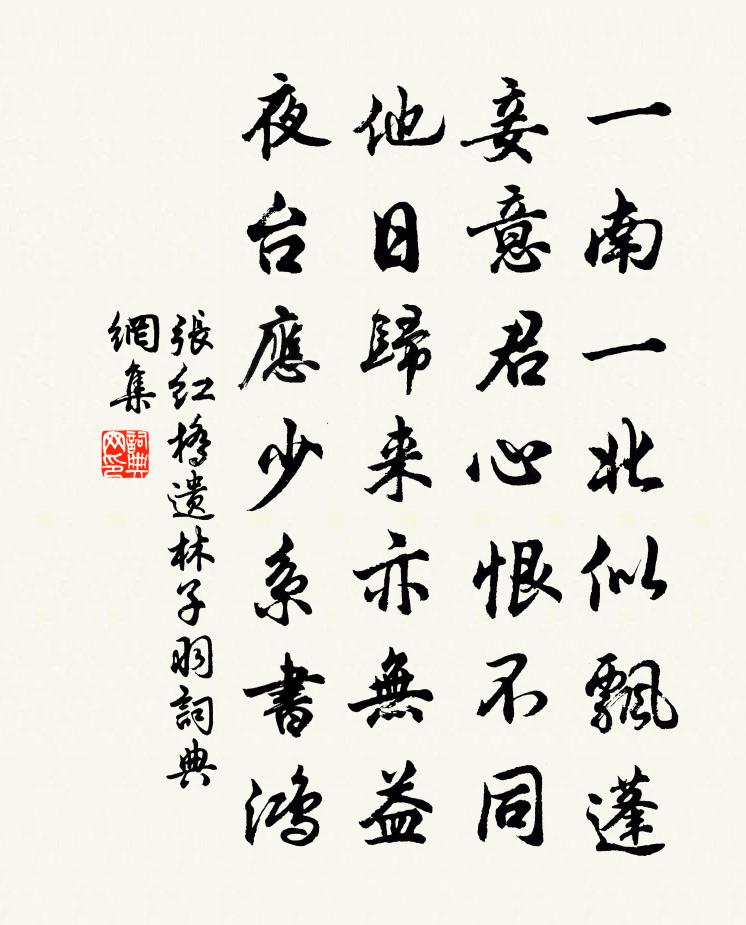 一南一北似飄蓬
妾意君心恨不同
他日歸来亦無益
夜台應少系書鴻
張紅橋遗林子羽詞典
網集
詞典
网印